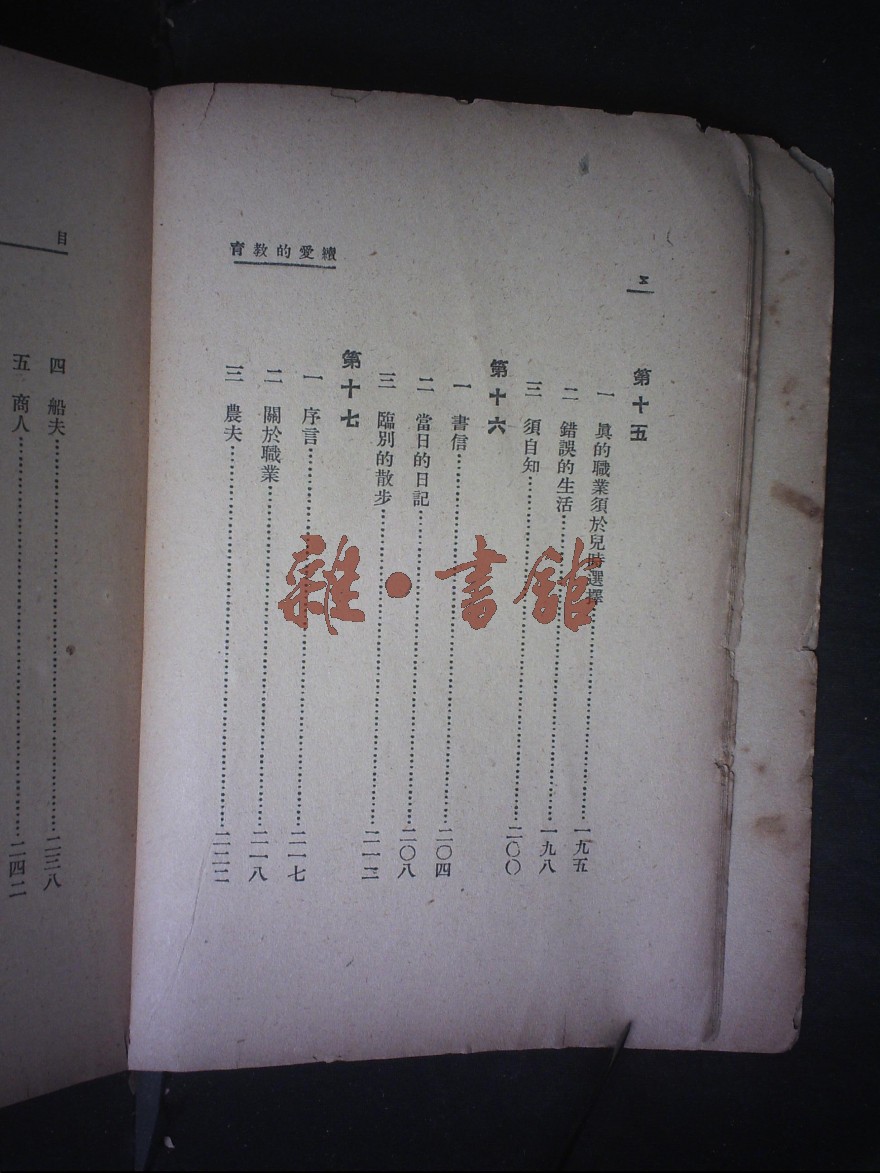 續愛的教育
第十五
一 眞的職業須於兒時選擇……一九五
二 錯誤的生活……一九八
三 須自知……二〇〇
第十六
一 書信……二〇四
二 當日的日記……二〇八
三 臨別的散步……二一三
第十七
一 序言……二一七
二 關於職業……二一八
三 農夫……二二二
目
四 船夫……二三八
五 商人……二四二
雜·書館